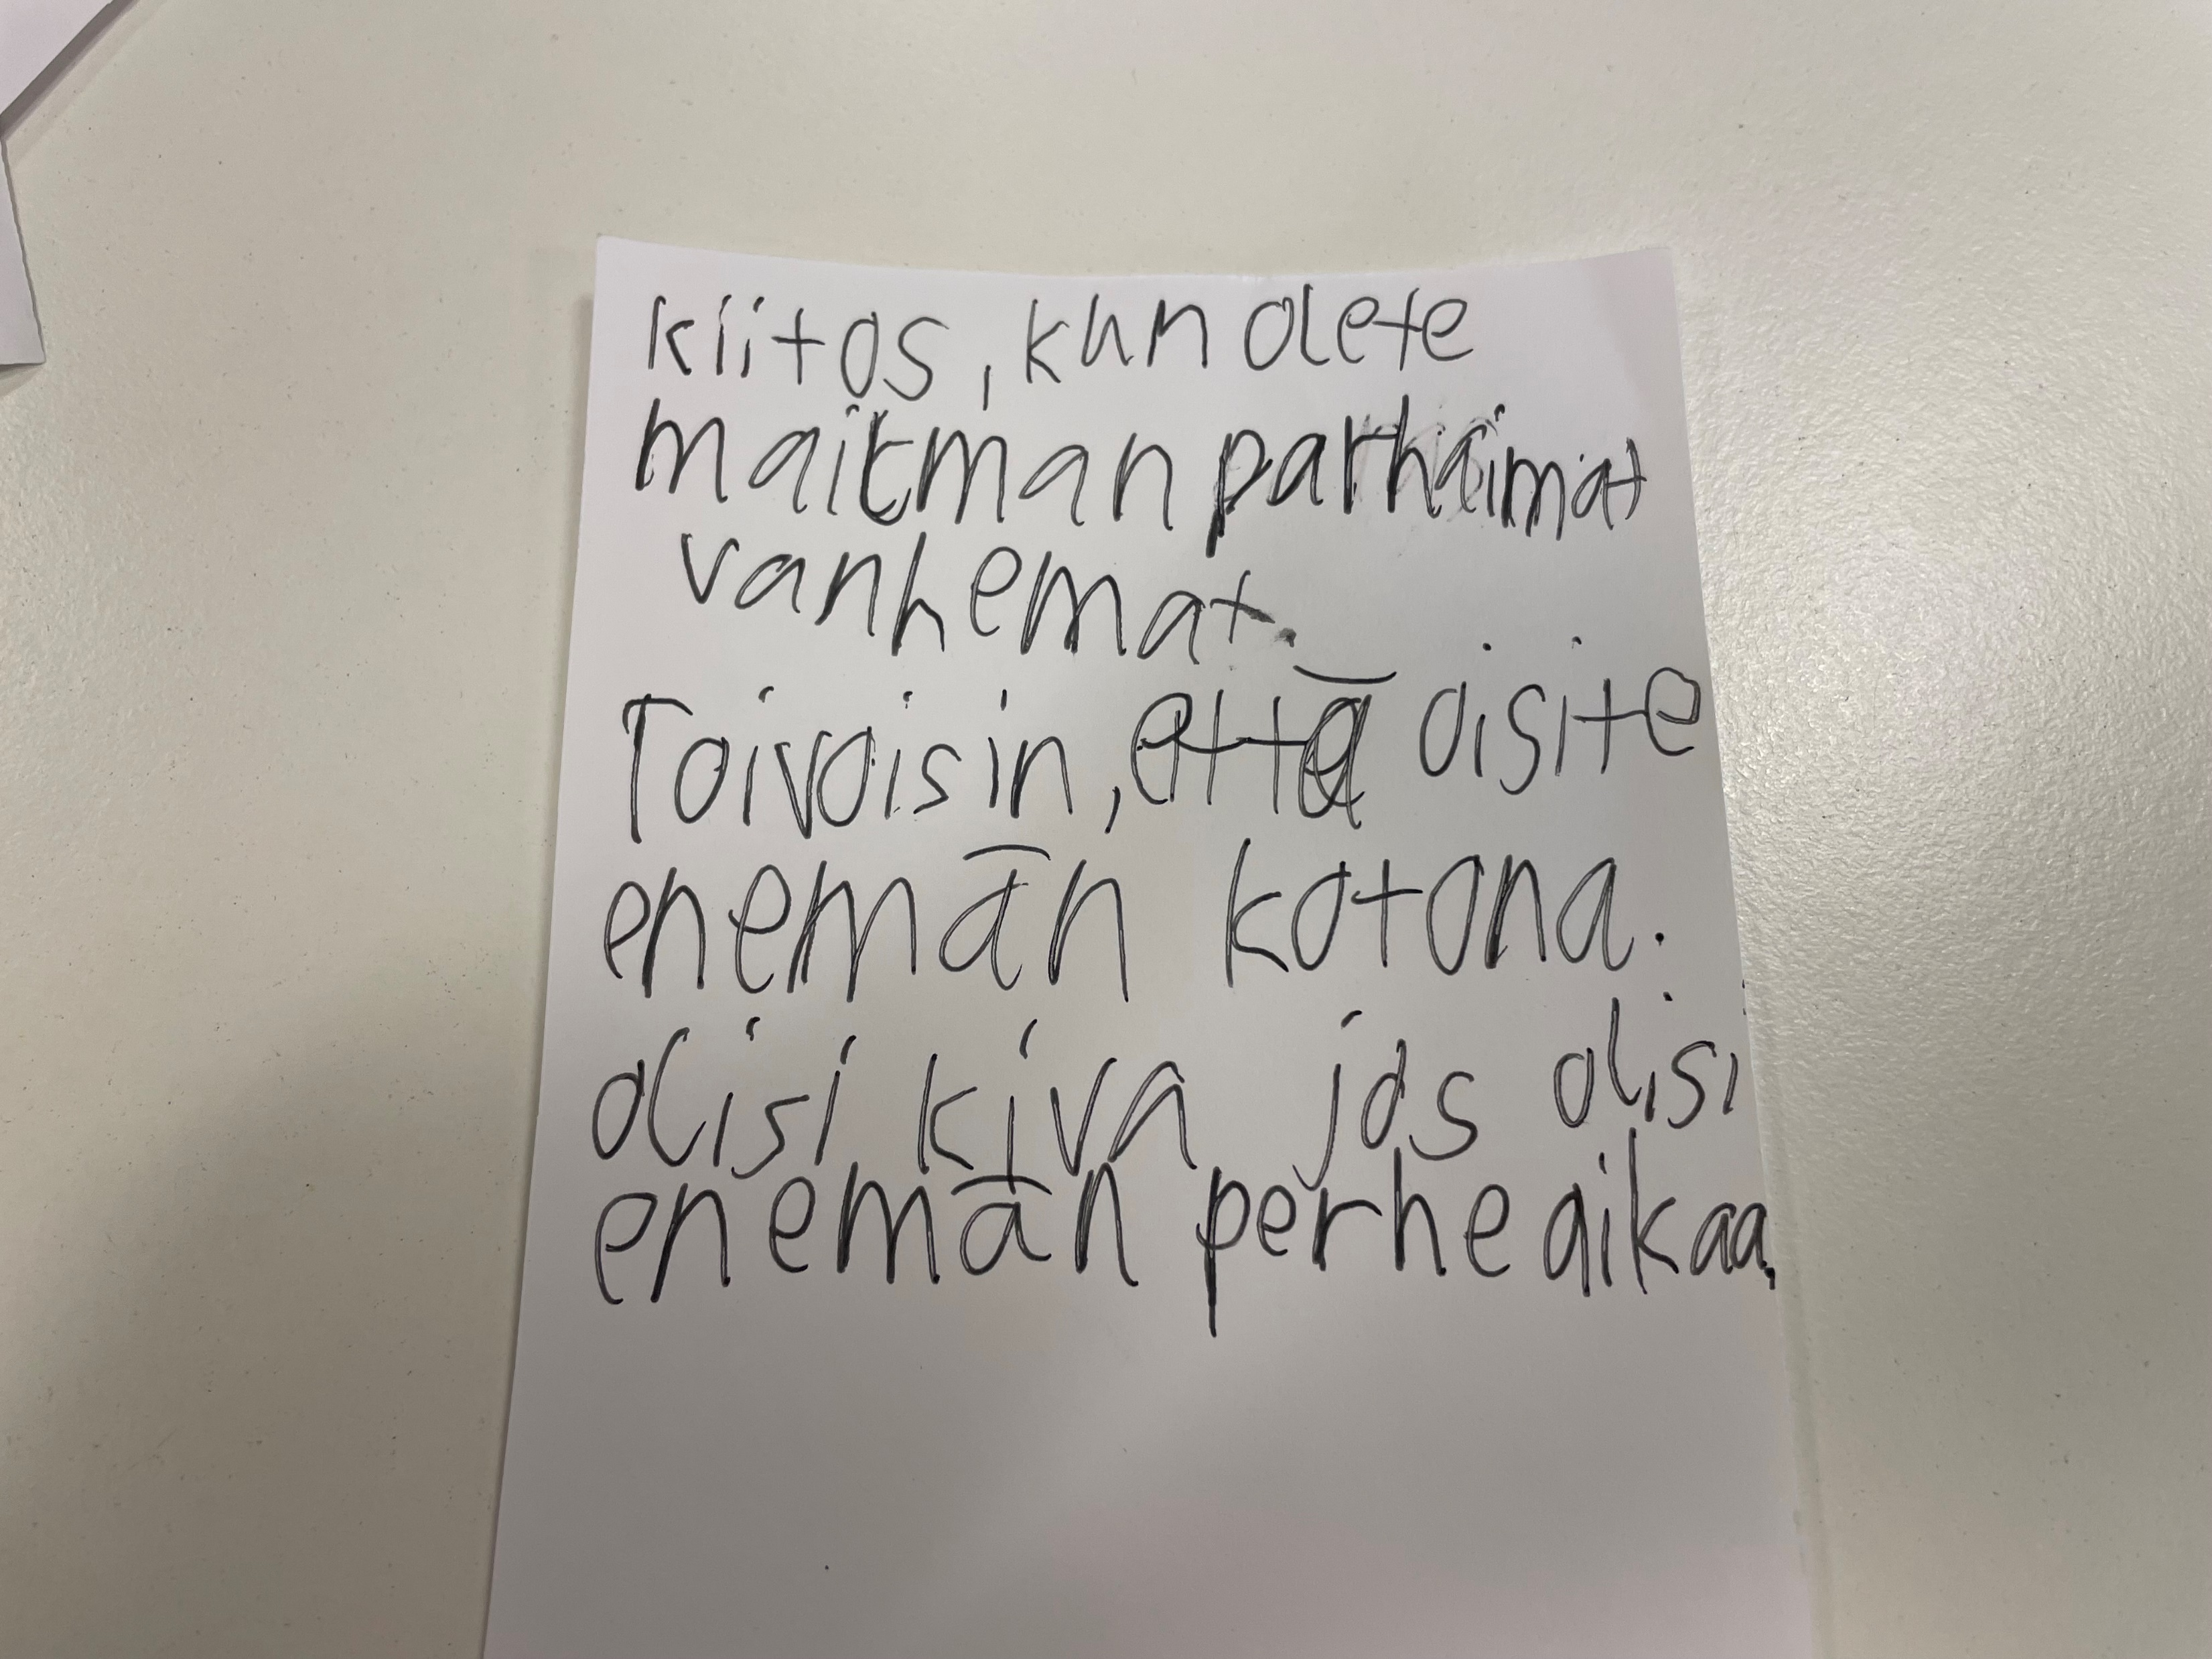 kiitos, kun olete
mailman parhaimat
vanhemat.
Toivoisin, että oisite
enemän kotona.
olisi kiva jos olisi
enemän perhe aikaa.